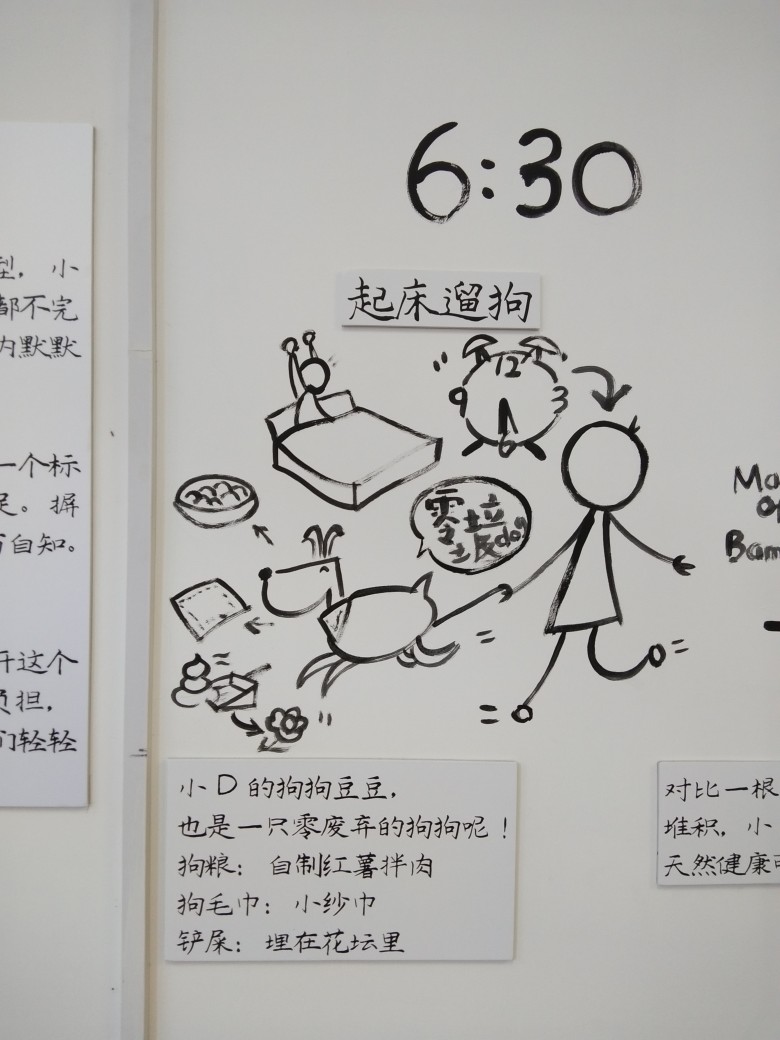 型，小
都不完
内默默
一个标
足。摒
有自知。
开这个
负担，
们轻轻
6:30
起床遛狗
12
9
3
6
零垃
圾dog
Ma
Op
Bam
小D的狗狗豆豆，
也是一只零废弃的狗狗呢！
狗粮：自制红薯拌肉
狗毛巾：小纱巾
铲屎：埋在花坛里
对比一根
堆积，小
天然健康